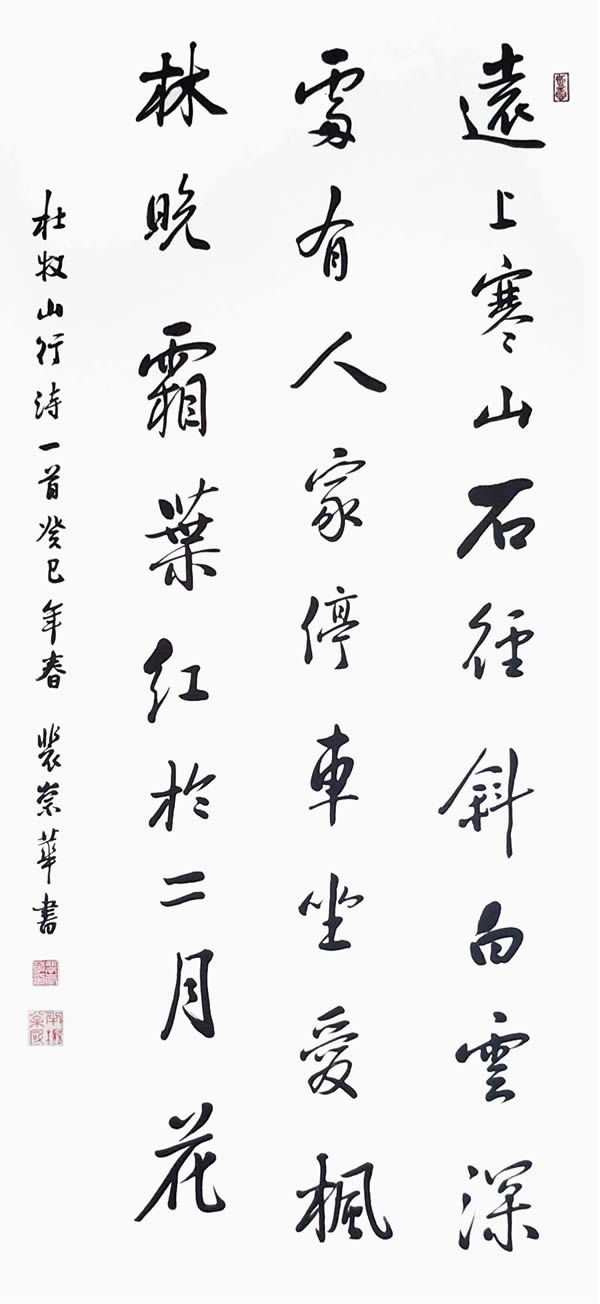 遠上寒山石徑斜白雲深
處有人家停車坐愛楓
林晚霜葉紅於二月花
杜牧山行詩一首癸巳年春 裴崇華書